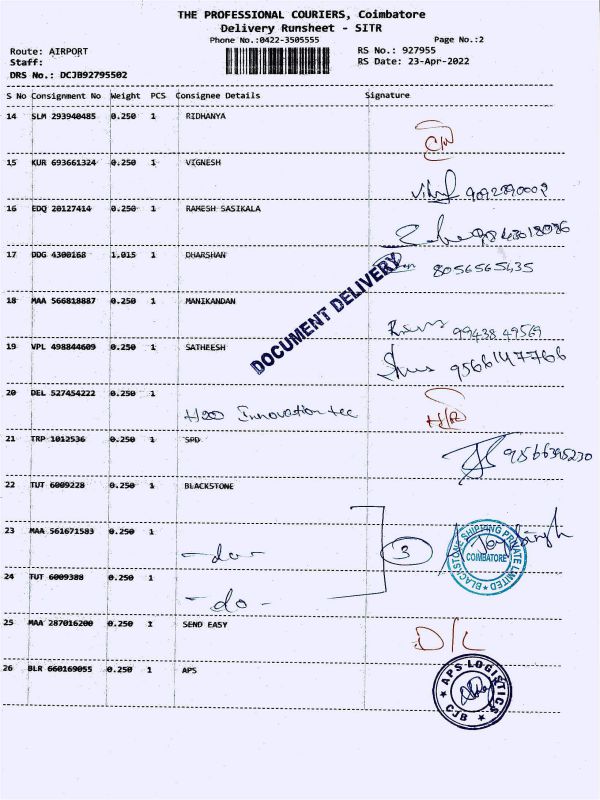 THE PROFESSIONAL COURIERS, Coimbatore
Delivery Runsheet - SITR
Phone No.:0422-3505555
Page No.:2
Route: AIRPORT
RS No.: 927955
Staff:
RS Date: 23-Apr-2022
DRS No.: DCJB92795502
S No Consignment No Weight PCS Consignee Details Signature
14 SLM 293940485 0.250 1 RIDHANYA
15 KUR 693661324 0.250 1 VIGNESH
16 EDQ 20127414 0.250 1 RAMESH SASIKALA
17 DDG 4300168 1.015 1 DHARSHAN 8056565435
DOCUMENT DELIVERY
18 MAA 566818887 0.250 1 MANIKANDAN
99438 49569
19 VPL 498844609 0.250 1 SATHEESH 9566147766
20 DEL 527454222 0.250 1
H2O Innovation tec
21 TRP 1012536 0.250 1 SPD 9566395230
22 TUT 6009228 0.250 1 BLACKSTONE
23 MAA 561671583 0.250 1
-do- 3
BLACKSTONE SHIPPING PRIVATE LIMITED
COIMBATORE
24 TUT 6009388 0.250 1
-do-
25 MAA 287016200 0.250 1 SEND EASY D/L
26 BLR 660169055 0.250 1 APS
APS-LOGISTICS
CJB